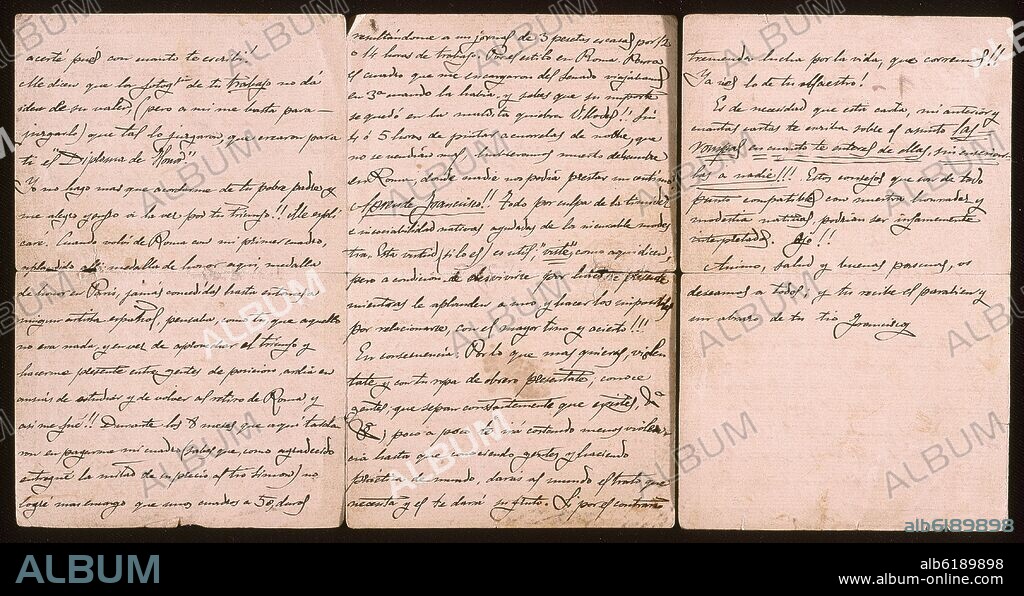 acerté pués con cuanto te escribí!
Me dicen que las fotos de tu trabajo no dá
idea de su valor (pero a mi me basta para
juzgarlo) que tal lo juzgaron, que crearon para
ti el "Diploma de Honor"
Yo no hago mas que acordarme de tu pobre padre y
me alegro y gozo a la vez por tu triunfo!! Me expli
caré. Cuando volví de Roma con mi primer cuadro,
aplaudido medalla de honor aqui, medalla
de honor en Paris, jamás concedidas hasta entonces a
ningun artista español, pensaba, como tu que aquello
no era nada, y en vez de aprovechar el triunfo y
hacerme presente entre gentes de posicion, ardia en
ansias de estudiar y de volver al retiro de Roma y
asi me fué!! Durante los 8 meses que aqui tarda
ron en pagarme mi cuadro (sabes que, como agradecido
entregué la mitad de su precio al tio Simon) no
logré mas encargo que unos cuadros a 50 duros
resultándome a un jornal de 3 pesetas escasas por 12
o 14 horas de trabajo. Por el estilo en Roma. Para
el cuadro que me encargaron del Senado viajabamos
en 3ª cuando la habia, y sabes que su importe
se quedó en la maldita quiebra Villodas!! Sin
4 ó 5 horas de pintar acuarelas de noche, que
no se vendrian mas hubieramos muerto de hambre
en Roma, donde nadie no podia prestar un centimo
Al Francisco!! Todo por culpa de la timidez
e insociabilidad nativas ayudadas de la incurable modes
tia. Esta virtud (si lo es) es util, "viste", como aqui dicen,
pero a condicion de servirse por hacerse presente
mientras le aplauden a uno, y hacer los imposibles
por relacionarse, con el mayor tino y acierto!!!
En consecuencia: Por lo que mas quieras, violen
tate, y con tu ropa de obrero presentate, conoce
gentes, que sepan constantemente que existes,
poco á poco te irá costando menos violen
cia hasta que conociendo gentes y haciendo
práctica de mundo, daras al mundo el trato que
necesita y el te dará su fruto. Si por el contrario
tremenda lucha por la vida, que corremos!!
Ya ves lo de tu maestro!
Es de necesidad que esta carta, mi anterior y
cuantas cartas te escriba sobre el asunto las
rompas en cuanto te enteres de ellas, sin enseñar
las a nadie!!! Estos consejos que son de todo
punto compatibles con nuestra honradez y
modestia natural, podrian ser infamemente
interpretados. Ojo!!
Animo, salud y buenas pascuas, os
deseamos a todos, y tu recibe el parabien y
un abrazo de tu tio Francisco
ALBUM
alb6189898
ALBUM
alb6189898
www.album-online.com